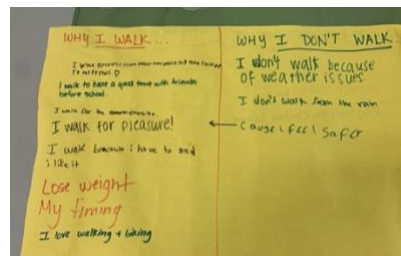 WHY I WALK...
I walk
to
I walk to have a good time with friends
before school.
I walk for the
I walk for pleasure!
I walk because i have to and
i like it
Lose weight
My timing
I love walking + biking
WHY I DON'T WALK
I don't walk because
of weather issues
I don't walk from the rain
Cause i feel safer